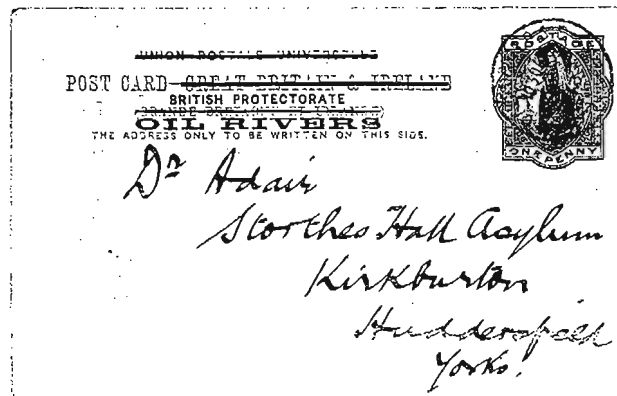 UNION POSTALE UNIVERSELLE
POST CARD GREAT BRITAIN & IRELAND
BRITISH PROTECTORATE
GRANDE BRETAGNE ET IRLANDE
OIL RIVERS
THE ADDRESS ONLY TO BE WRITTEN ON THIS SIDE.
POSTAGE
ONE PENNY
Dr Adair
Storthes Hall Asylum
Kirkburton
Huddersfield
Yorks.